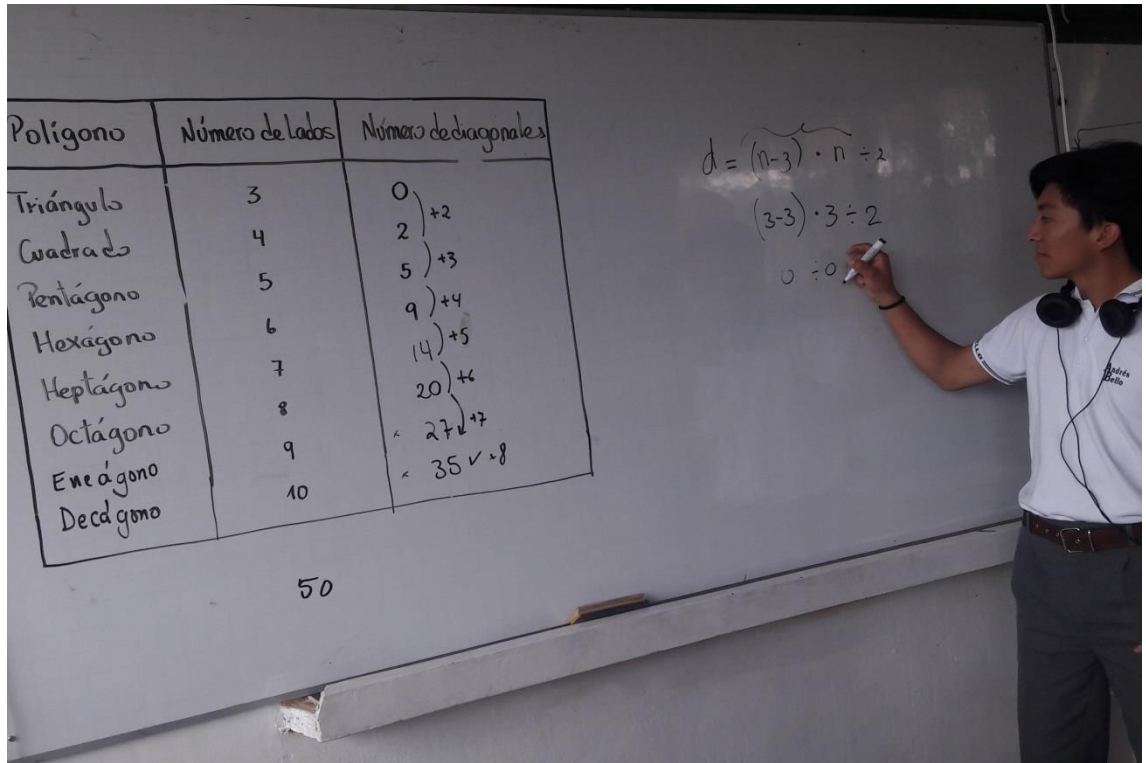 Polígono Número de Lados Número de diagonales
Triángulo 3 0
Cuadrado 4 2 +2
Pentágono 5 5 +3
Hexágono 6 9 +4
Heptágono 7 14 +5
Octágono 8 20 +6
Eneágono 9 27 +7
Decágono 10 35 +8
50
d = (n-3) · n ÷ 2
(3-3) · 3 ÷ 2
0 ÷0
Andrés
Bello